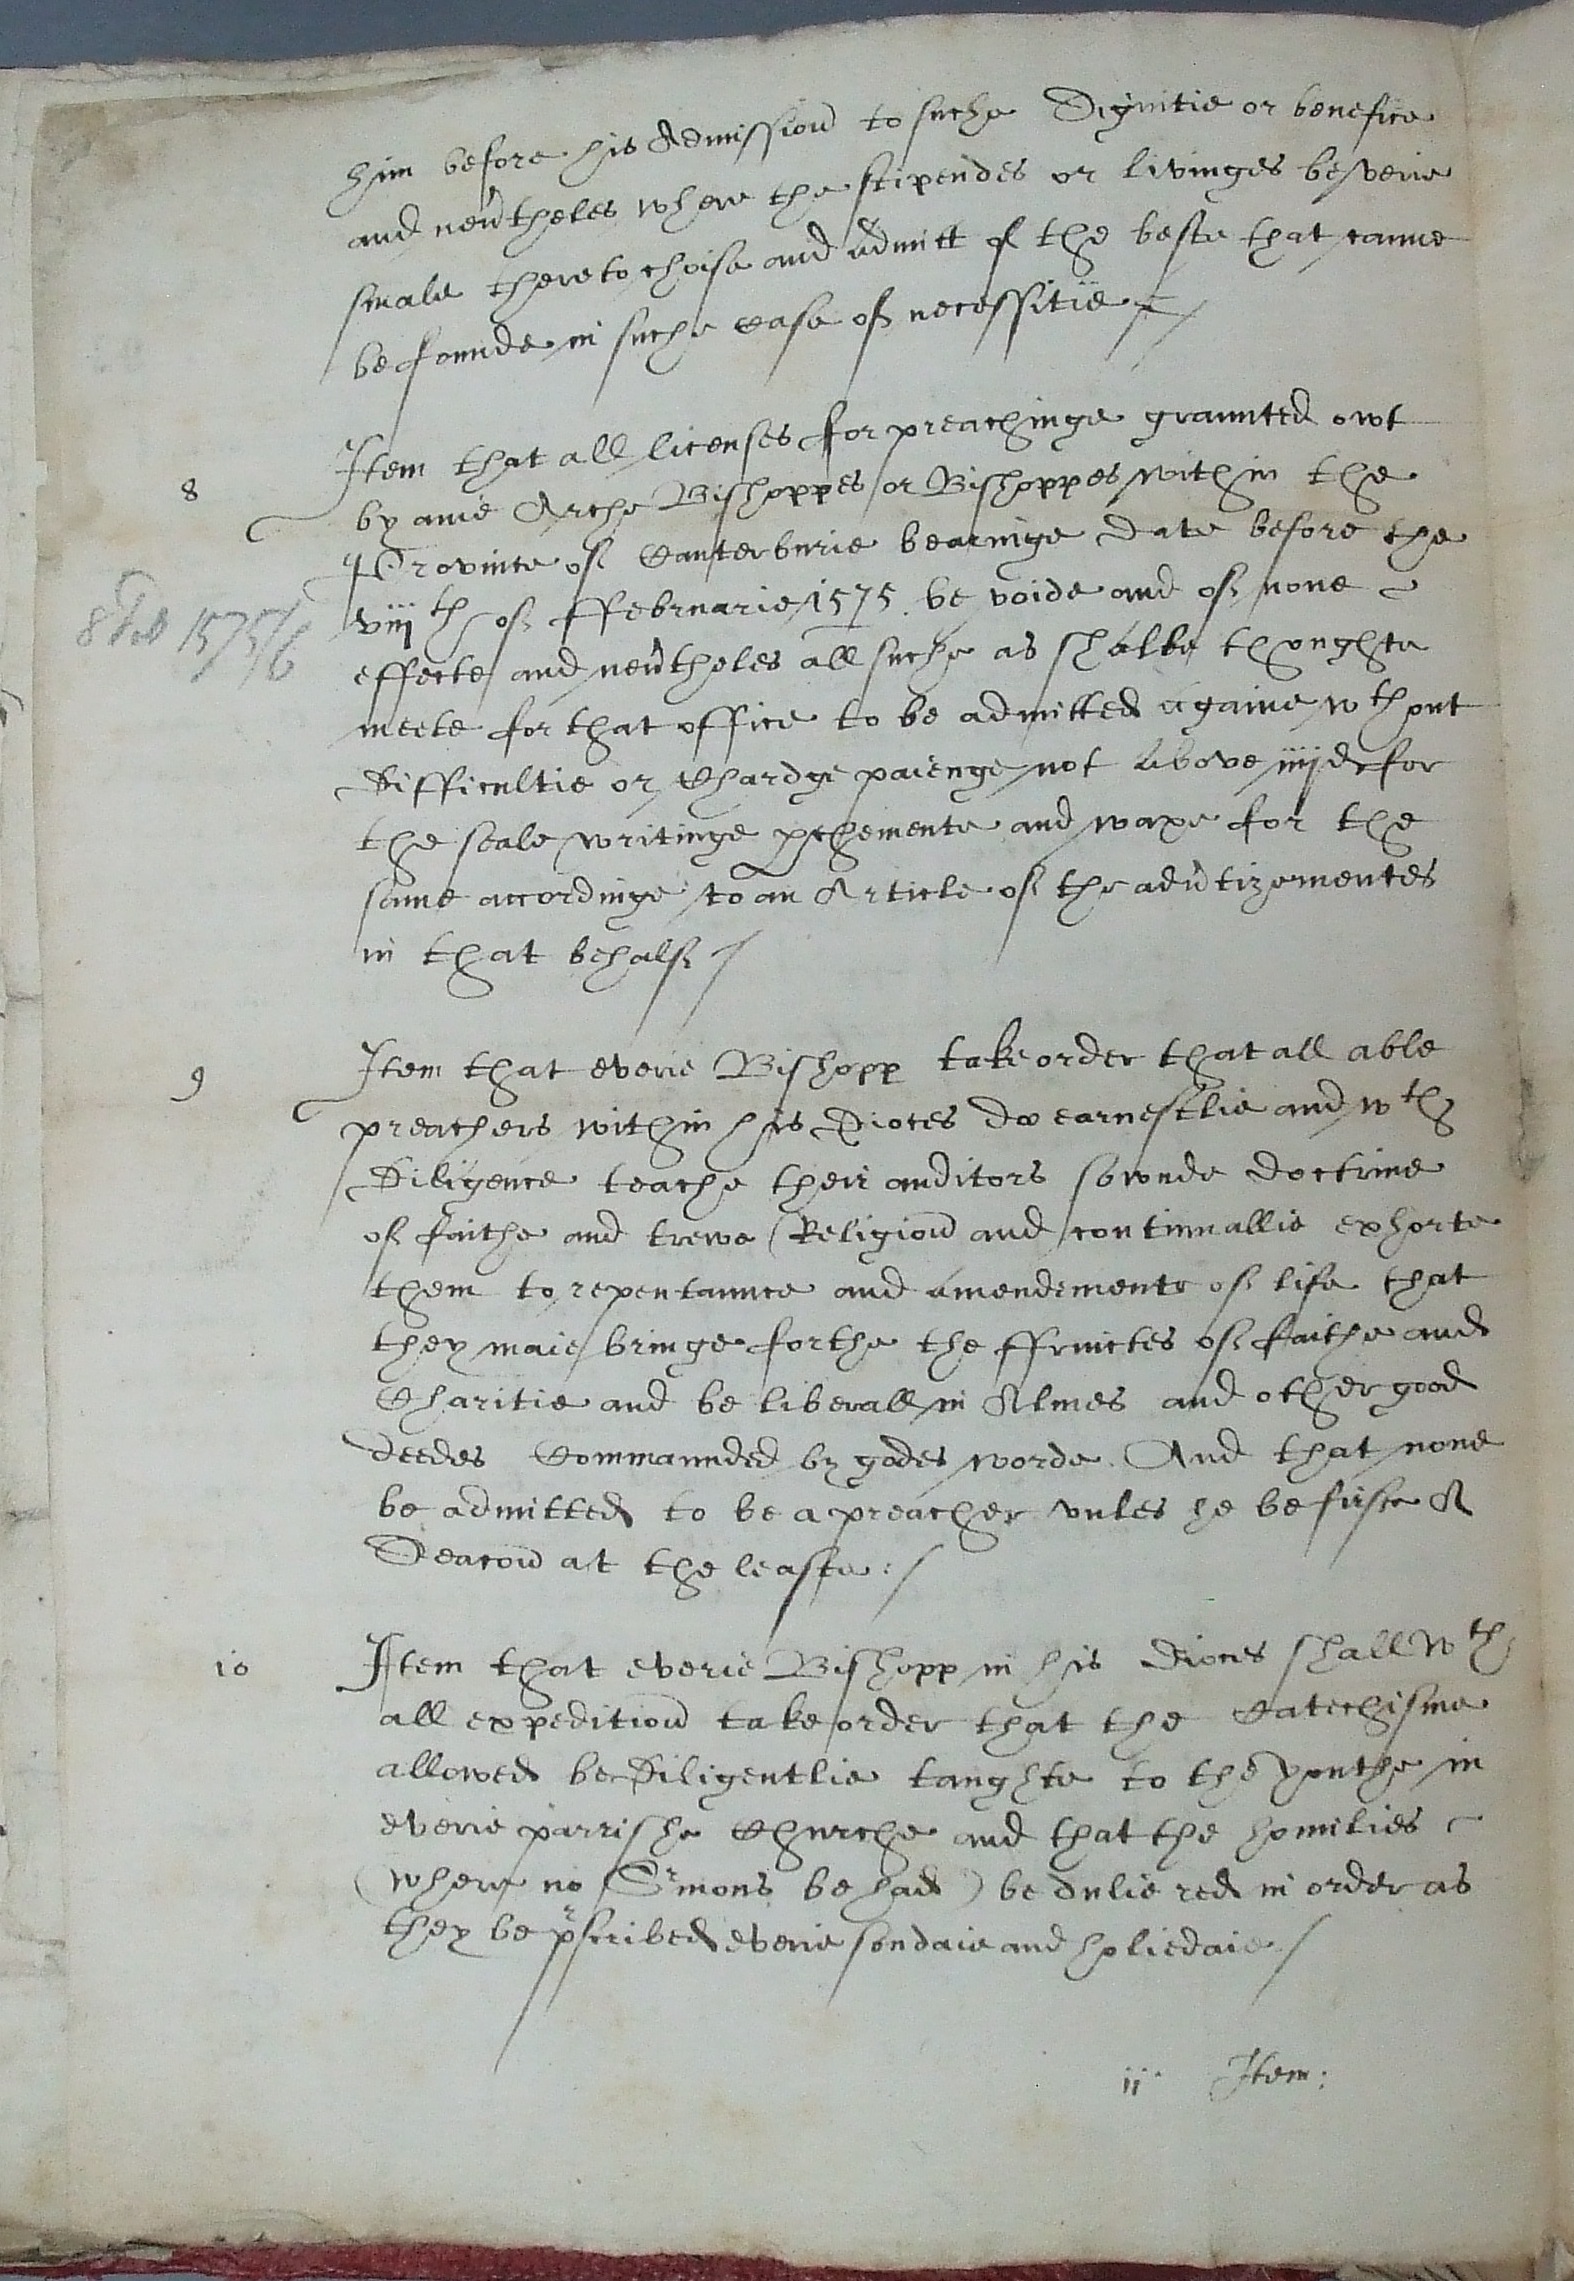 him before his Admission to suche Dignitie or benefice
and neu'theles where the stipendes or livinges be verie
smale thereto choise and Admitt of the beste that canne
be founde in suche Case of necessitie /
8 Item that all licenses for preachinge graunted owt
by anie Arche Bishoppes or Bishoppes within the
Province of Canterburie bearinge date before the
8 Feb 1575/6
viijth of Februarie 1575 be voide and of none
effecte and neu'theles all suche as shalbe thoughte
meete for that office to be admitted againe wthout
difficultie or Chardge paienge not above iiijd for
the seale writinge p'chemente and waxe for the
same accordinge to an Article of the adu'tizementes
in that behalf /
9 Item that everie Bishopp take order that all able
preachers within his Dioces do earnestlie and wth
Diligence teache their auditors sownde doctrine
of faithe and trewe Religion and continuallie exhorte
them to repentaunce and amendemente of life that
they maie bringe forthe the ffruictes of faithe and
Charitie and be liberall in Almes and other good
deedes Commaunded by godes worde. And that none
be admitted to be a preacher vnles he be firste A
Deacon at the leaste : /
10 Item that everie Bishopp in his Dioces shall wth
all expedition take order that the Catechisme
allowed be Diligentlie taughte to the youthe in
everie parrishe Churche and that the homilies
(where no S'mons be had) be dulie red in order as
they be p'scribed everie sondaie and holiedaie /
ii Item: